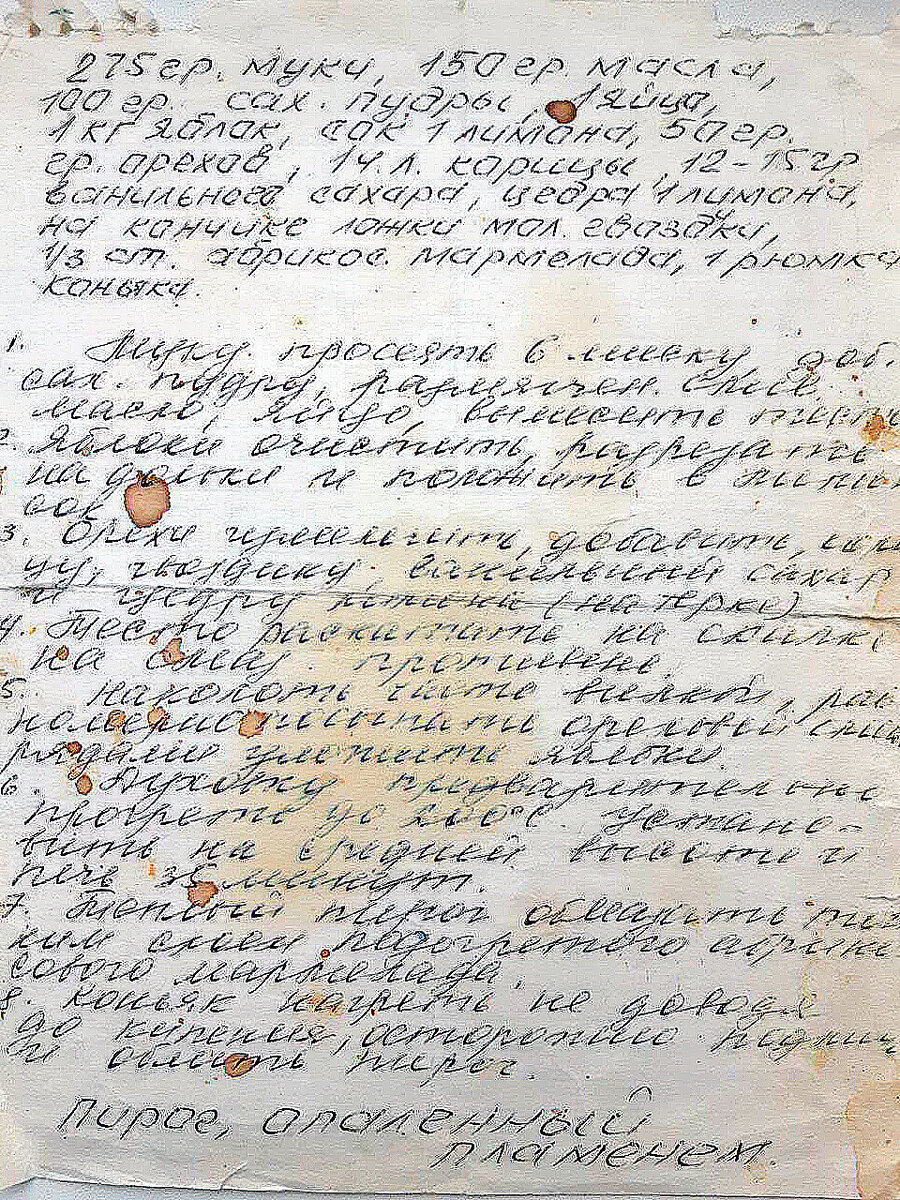 275 гр. муки, 150 гр. масла,
100 гр. сах. пудры, 1 яйцо,
1 кг яблак, сок 1 лимана, 50 гр.
гр. орехов, 1 ч.л. карицы, 12-15 гр
ванильного сахара, цедра 1 лимана,
на канчике ложки мол. гваздки,
1/3 ст. абрикос. мармелада, 1 рюмка
коньяка.
1. Муку просеять в миску, доб.
сах. пудру, размягчен. слив.
масло, яйцо, вымесить тесто
2. Яблоки очистить, разрезать
на дольки и положить в лимон
сок
3. Орехи измельчить, добавить кори
цу, гвоздику, ванильный сахар
и цедру лимона (на терке)
4. Тесто раскатать на скалке
на смаз. противене.
5. наколоть часто вилкой, рав
номерно посыпать ореховой смес
рядами уложить яблоки.
6. Духовку предварительно
прогреть до 200°С. Устано-
вить на средней высоте и
печь 35 минут.
7. Теплый пирог обмазать тон
ким слоем подогретого абрико
сового мармелада.
8. Коньяк нагреть не доводя
до кипения, осторожно поджич
и облить пирог.
Пирог, опаленный
пламенем.